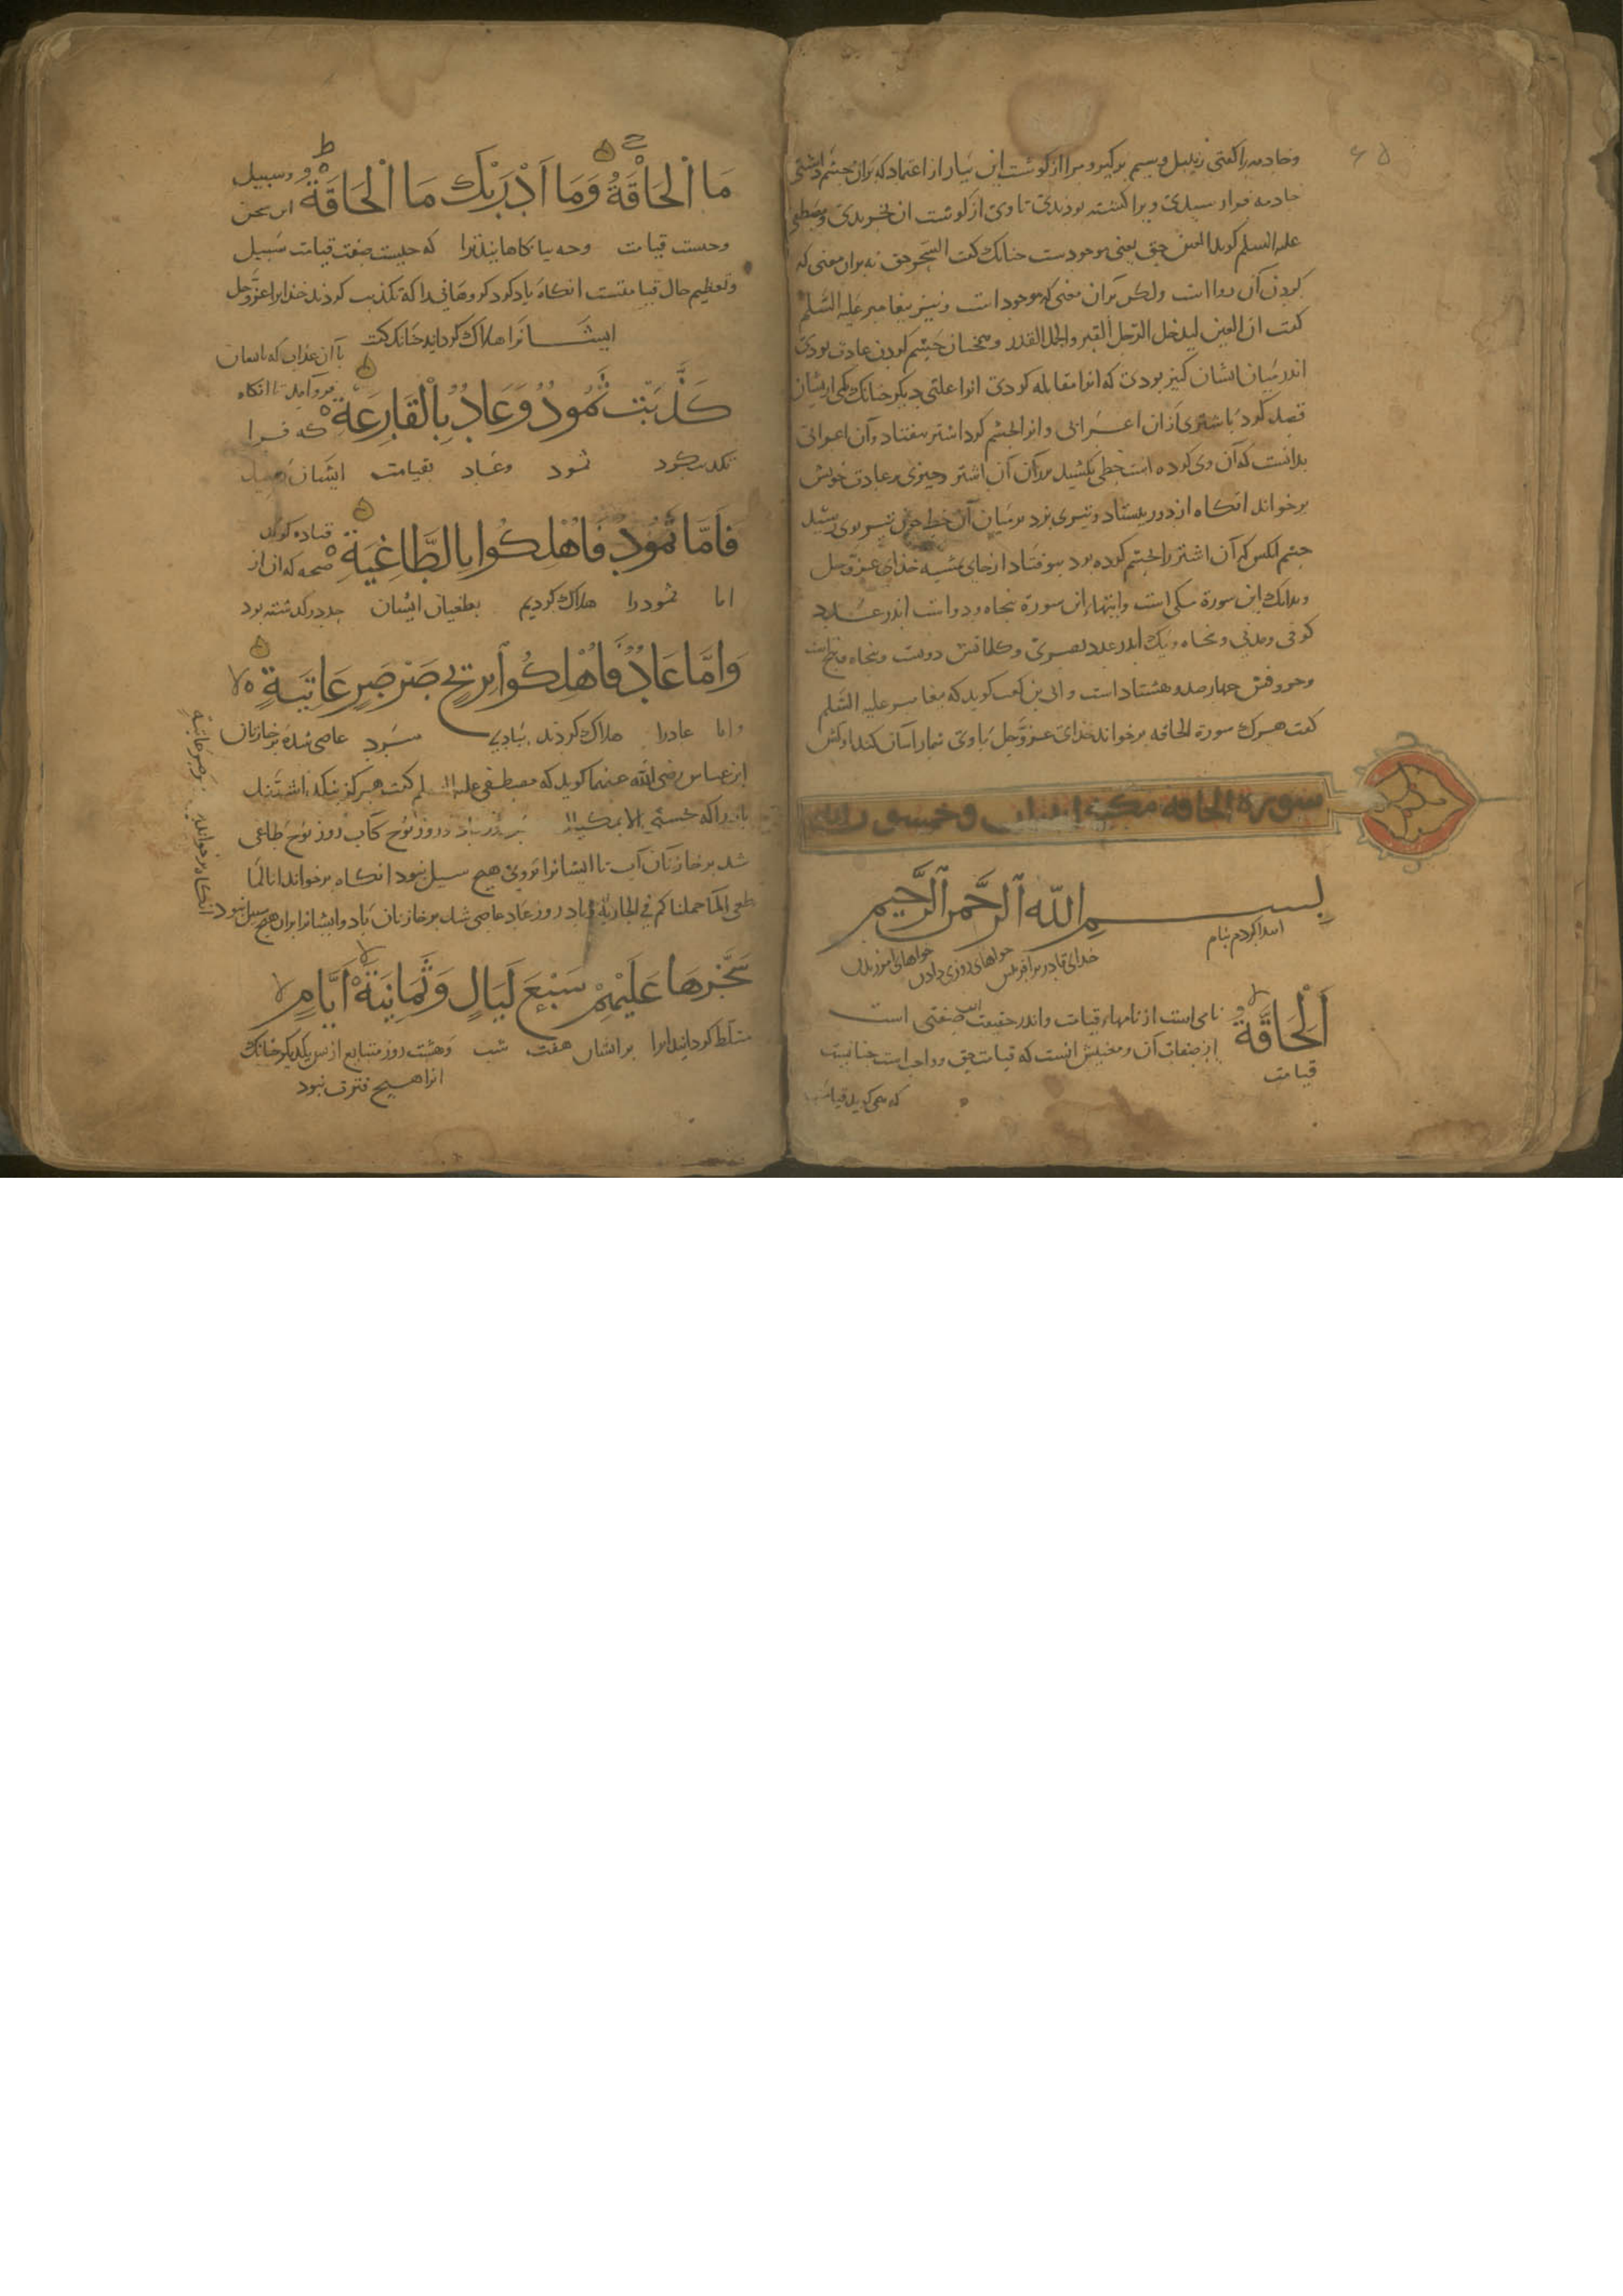 ۶۵
وخادمه را کفتی زنبیل وسیم برکیر و مرا از کوشت این بیار از اعتماد که بران چشم داشتی
خادمه فراز سیدی ویرا کشته بودندی تا وی از کوشت ان بخریدی ومصطفی
علیه السلم کوید العین حق یعنی موجودست جنانک کفت السحر حق نه بران معنی که
کردن آن روا است ولکن بران معنی که موجود است ونیز پیغامبر علیه السلم
کفت ان العین لیدخل الرجل القبر والجمل القدر وهمجنان چشم کردن عادت بودی
اندر میان ایشان کنیز بودی که انرا مقابله کردی انواع علتی دیکر جنانک یکی ازیشان
قصد کرد باشتری ازان اعرابی وانرا بجشم کرد اشتر بیفتاد وآن اعرابی
بدانست که آن وی کرده است خطی بکشید بر آن اشتر وجیزی بر عادت خویش
برخواند انکاه از دور بیستاد وتیری بزد بر میان آن خط جون تیر بوی رسید
جشم انکس که آن اشتر را بجشم کرده بود بیوفتاد از جای بمشیه خدای عزوجل
وبدانک این سورة مکی است وابتهاء این سورة بنجاه ودو است اندر عدد
کوفی ومدنی وبنجاه ویک اندر عدد بصری وکلماتش دویست وبنجاه وبنج است
وحروفش جهارصد وهشتاد است وابی بن کعب کوید که پیغامبر علیه السلم
کفت هرک سورة الحاقه برخواند خدای عزوجل با وی شمار آسان کند او کس
سورة الحاقه مکیة اثنان وخمسون ایة
بِسْمِ اللّٰهِ الرَّحْمٰنِ الرَّحِیمِ
ابتدا کردم بنام خدای قادر بر آفریدن جوانهای روزی دادن جوانهای امرزیدن
اَلْحَاقَّةُ نامی است از نامهاء قیامت واندر حقیقت صفتی است
قیامت از صفات آن ومعنیش انست که قیامت حق وواجب است جنانست
که می کوید قیامت
مَا الْحَاقَّةُ وَمَا اَدْرٰیكَ مَا الْحَاقَّةُ وسبیل این سخن
وجیست قیامت وجه بیاکاهانید ترا که جیست صفت قیامت سبیل
وتعظیم حال قیامتست انکاه یاد کرد کروهانی را که تکذیب کردند خدایرا عزوجل
ایشانرا هلاک کردانید جنانک کفت
كَذَّبَتْ ثَمُودُ وَعَادٌ بِالْقَارِعَةِ باآن عذاب که بایشان فرو آمد تا انکاه که فرا
تکذیب کرد ثمود وعاد بقیامت ایشان رسید
فَاَمَّا ثَمُودُ فَاُهْلِكُوا بِالطَّاغِیَةِ قتاده کوید صیحه که ان از
اما ثمود را هلاک کردیم بطغیان ایشان حد درکذشته بود
وَاَمَّا عَادٌ فَاُهْلِكُوا بِرِیحٍ صَرْصَرٍ عَاتِیَةٍ
واما عاد را هلاک کردند ببادی سرد عاصی شده بر خازنان
ابن عباس رضی الله عنهما کوید که مصطفی علیه السلم کفت هرکز نکذاشتند
باد را که جستی الا بمکیال روز نوح کاب روز نوح طاغی
شد بر خازنان آب تا ایشانرا بروی هیچ سبیل نبود انکاه برخواند انا لما
طغی الماء حملناکم فی الجاریة وباد روز عاد عاصی شد بر خازنان باد وایشانرا بران هیچ سبیل نبود
انکاه برخواند بریح صرصر عاتیة
سَخَّرَهَا عَلَیْهِمْ سَبْعَ لَیَالٍ وَثَمَانِیَةَ اَیَّامٍ
مسلط کردانید انرا بر ایشان هفت شب وهشت روز متتابع از پس یکدیکر جنانک
انرا هیچ فترت نبود